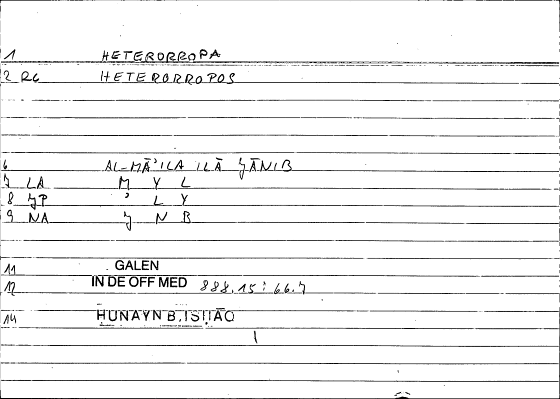 1 HETERORROPA
2 RG HETERORROPOS
6 AL-MĀʾILA ILĀ ǦĀNIB
7 LA M Y L
8 ǦP ʾ L Y
9 NA Ǧ N B
11 GALEN
12 IN DE OFF MED 888.15 : 66.7
14 ḤUNAYN B. ISḤĀQ
1